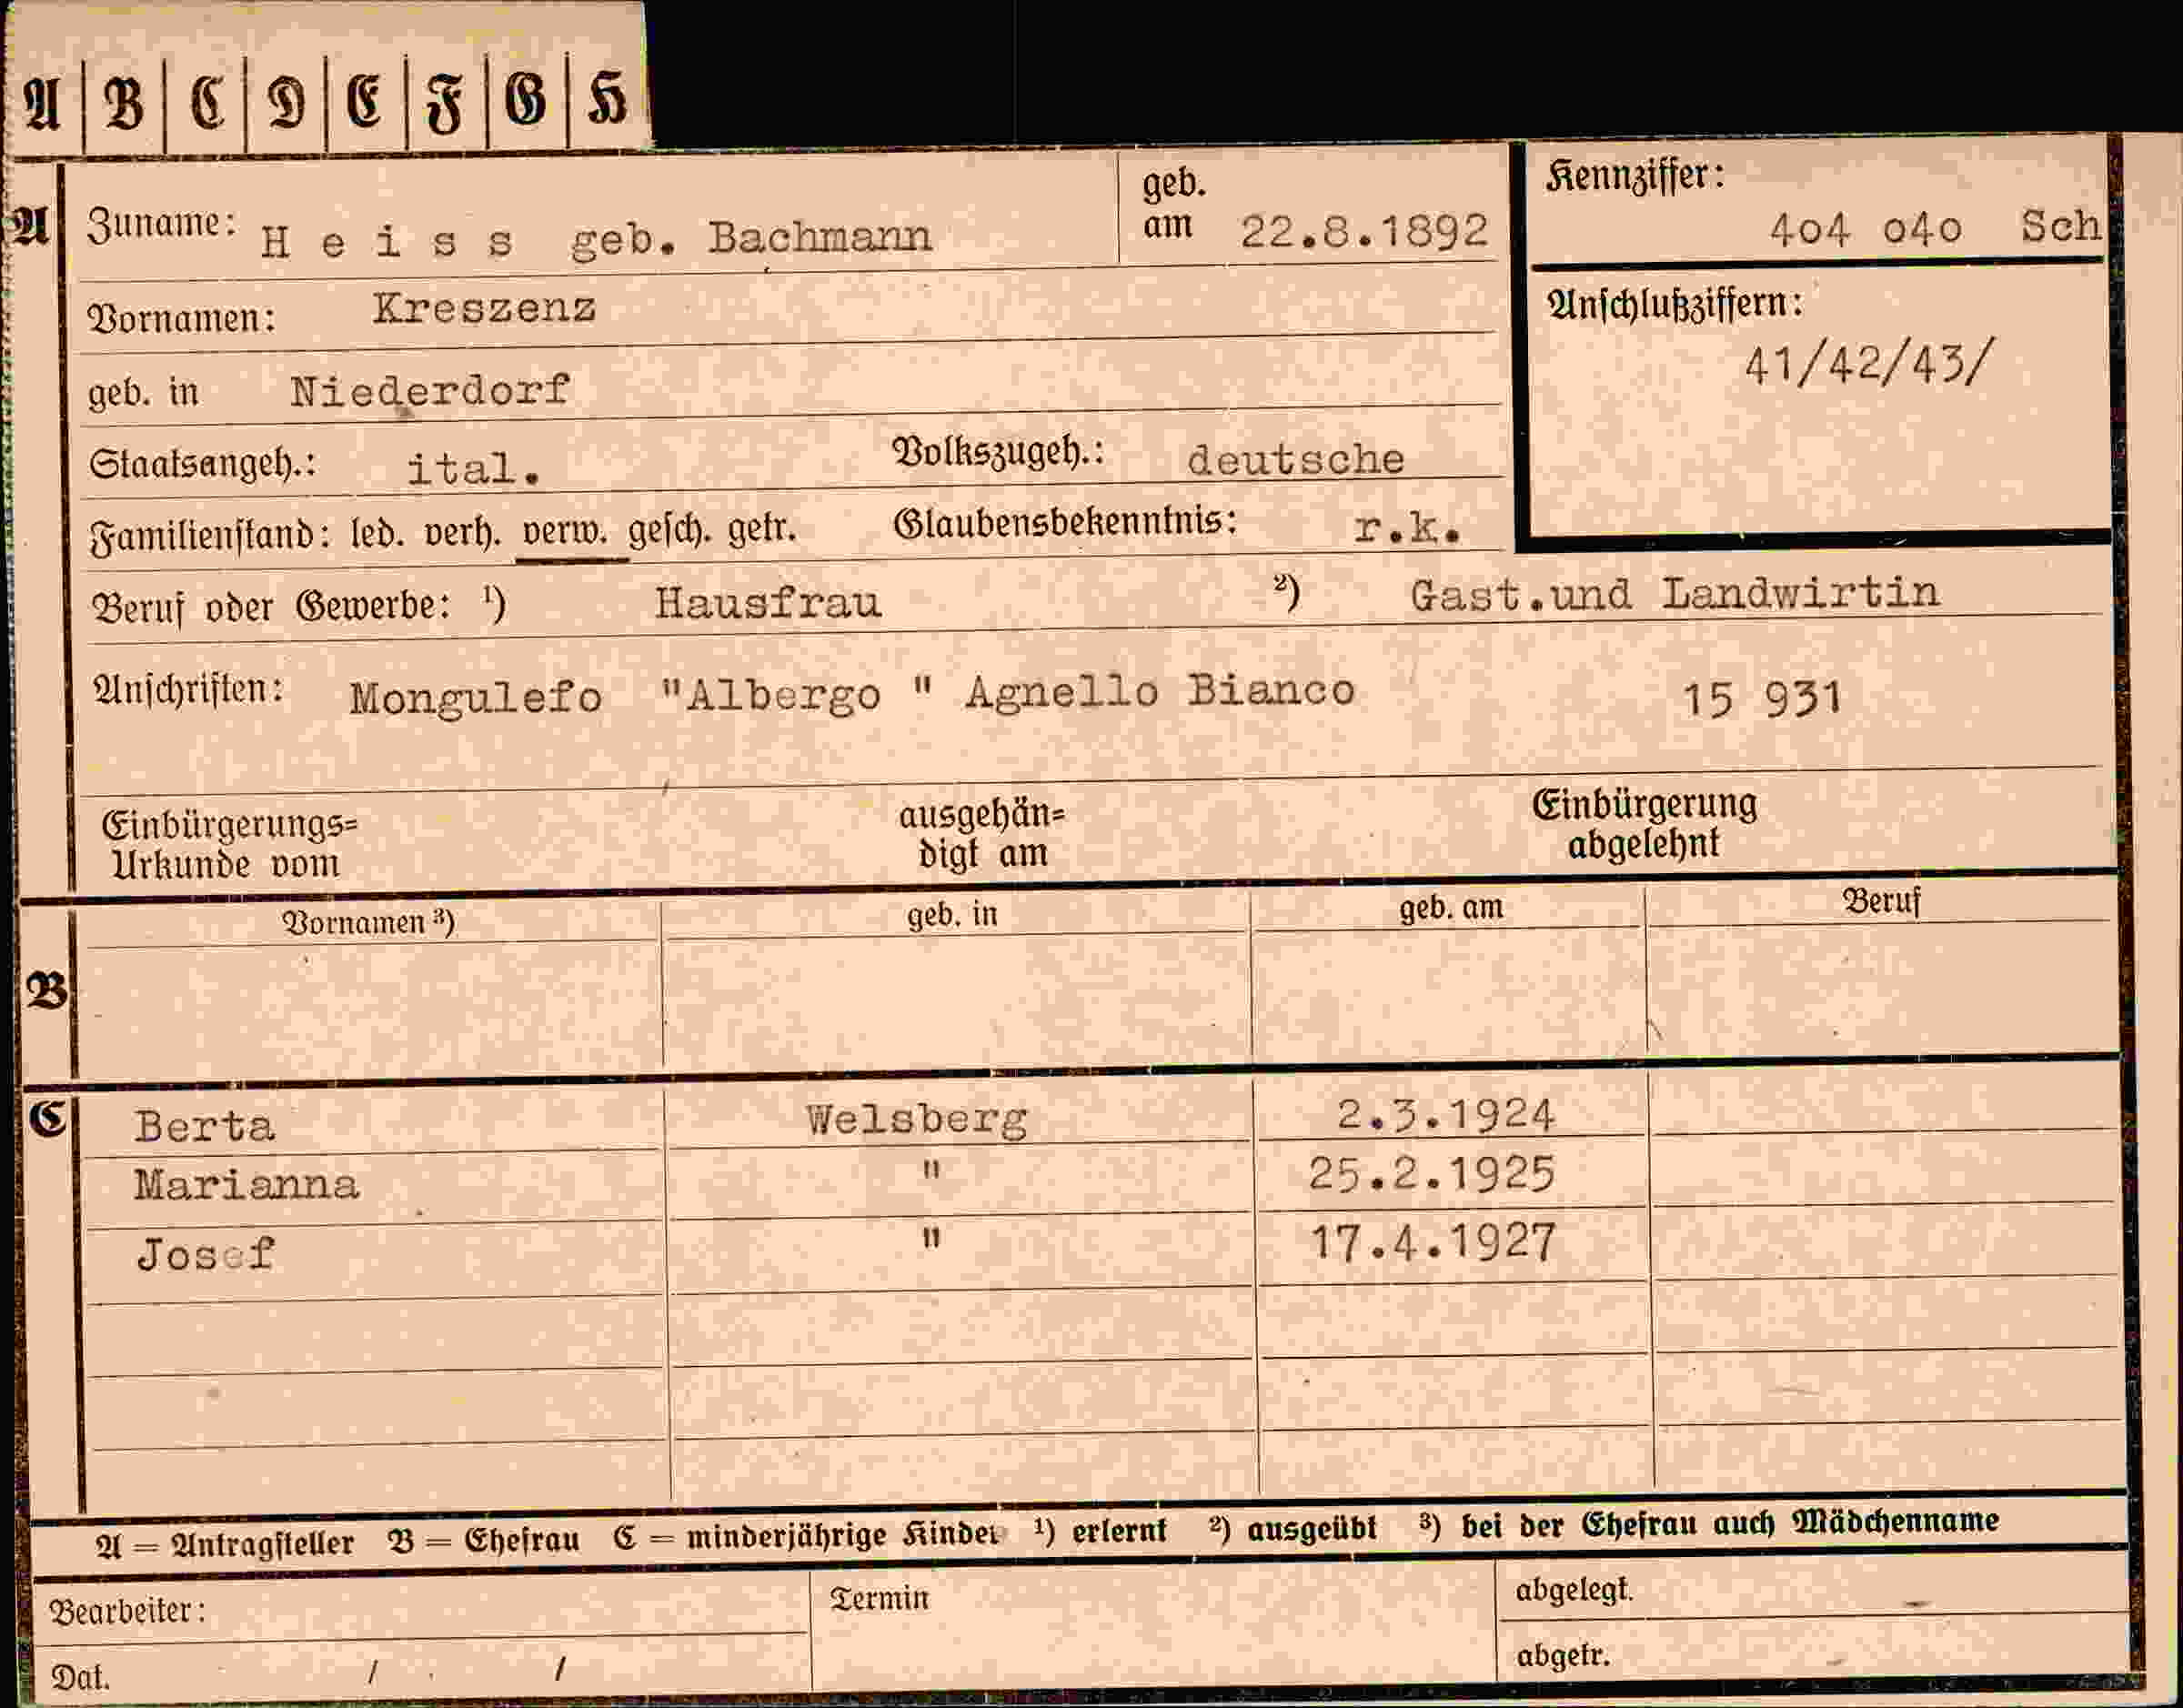 A B C D E F G H
A
Zuname: H e i s s geb. Bachmann
geb. am 22.8.1892
Kennziffer:
4o4 o4o Sch
Vornamen: Kreszenz
Anschlußziffern:
41/42/43/
geb. in Niederdorf
Staatsangeh.: ital. Volkszugeh.: deutsche
Familienstand: led. verh. verw. gesch. getr. Glaubensbekenntnis: r.k.
Beruf oder Gewerbe: ¹) Hausfrau ²) Gast.und Landwirtin
Anschriften: Mongulefo "Albergo " Agnello Bianco 15 931
Einbürgerungs= ausgehän= Einbürgerung
Urkunde vom digt am abgelehnt
Vornamen ³) geb. in geb. am Beruf
B
C
Berta Welsberg 2.3.1924
Marianna " 25.2.1925
Josef " 17.4.1927
A = Antragsteller B = Ehefrau C = minderjährige Kinder ¹) erlernt ²) ausgeübt ³) bei der Ehefrau auch Mädchenname
Bearbeiter: Termin abgelegt.
Dat. / / abgetr.